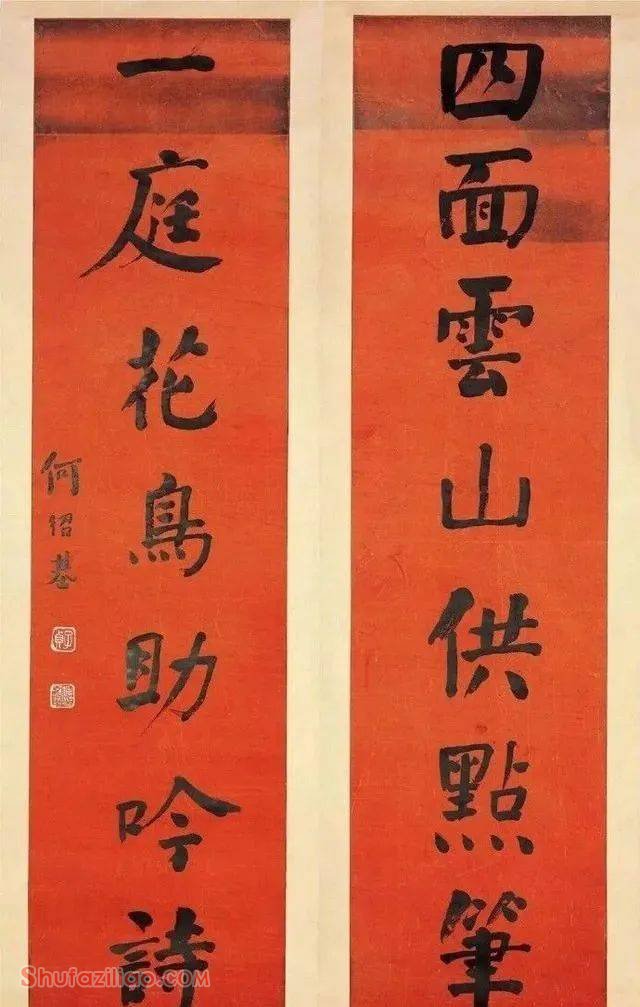 四面雲山供點筆
一庭花鳥助吟詩
何紹基
Shufaziliao.com